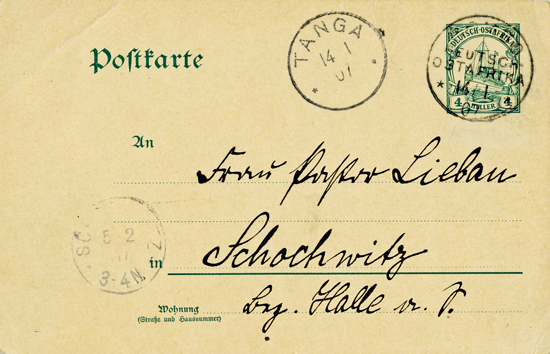 Postkarte
TANGA
14 1
07
DEUTSCH-OSTAFRIKA
DEUTSCH
OSTAFRIKA
14 1
07
4 HELLER 4
An
Frau Pastor Liebau
Schochwitz
8 2
3-4N
in
Bez. Halle a. S.
Wohnung
(Straße und Hausnummer)